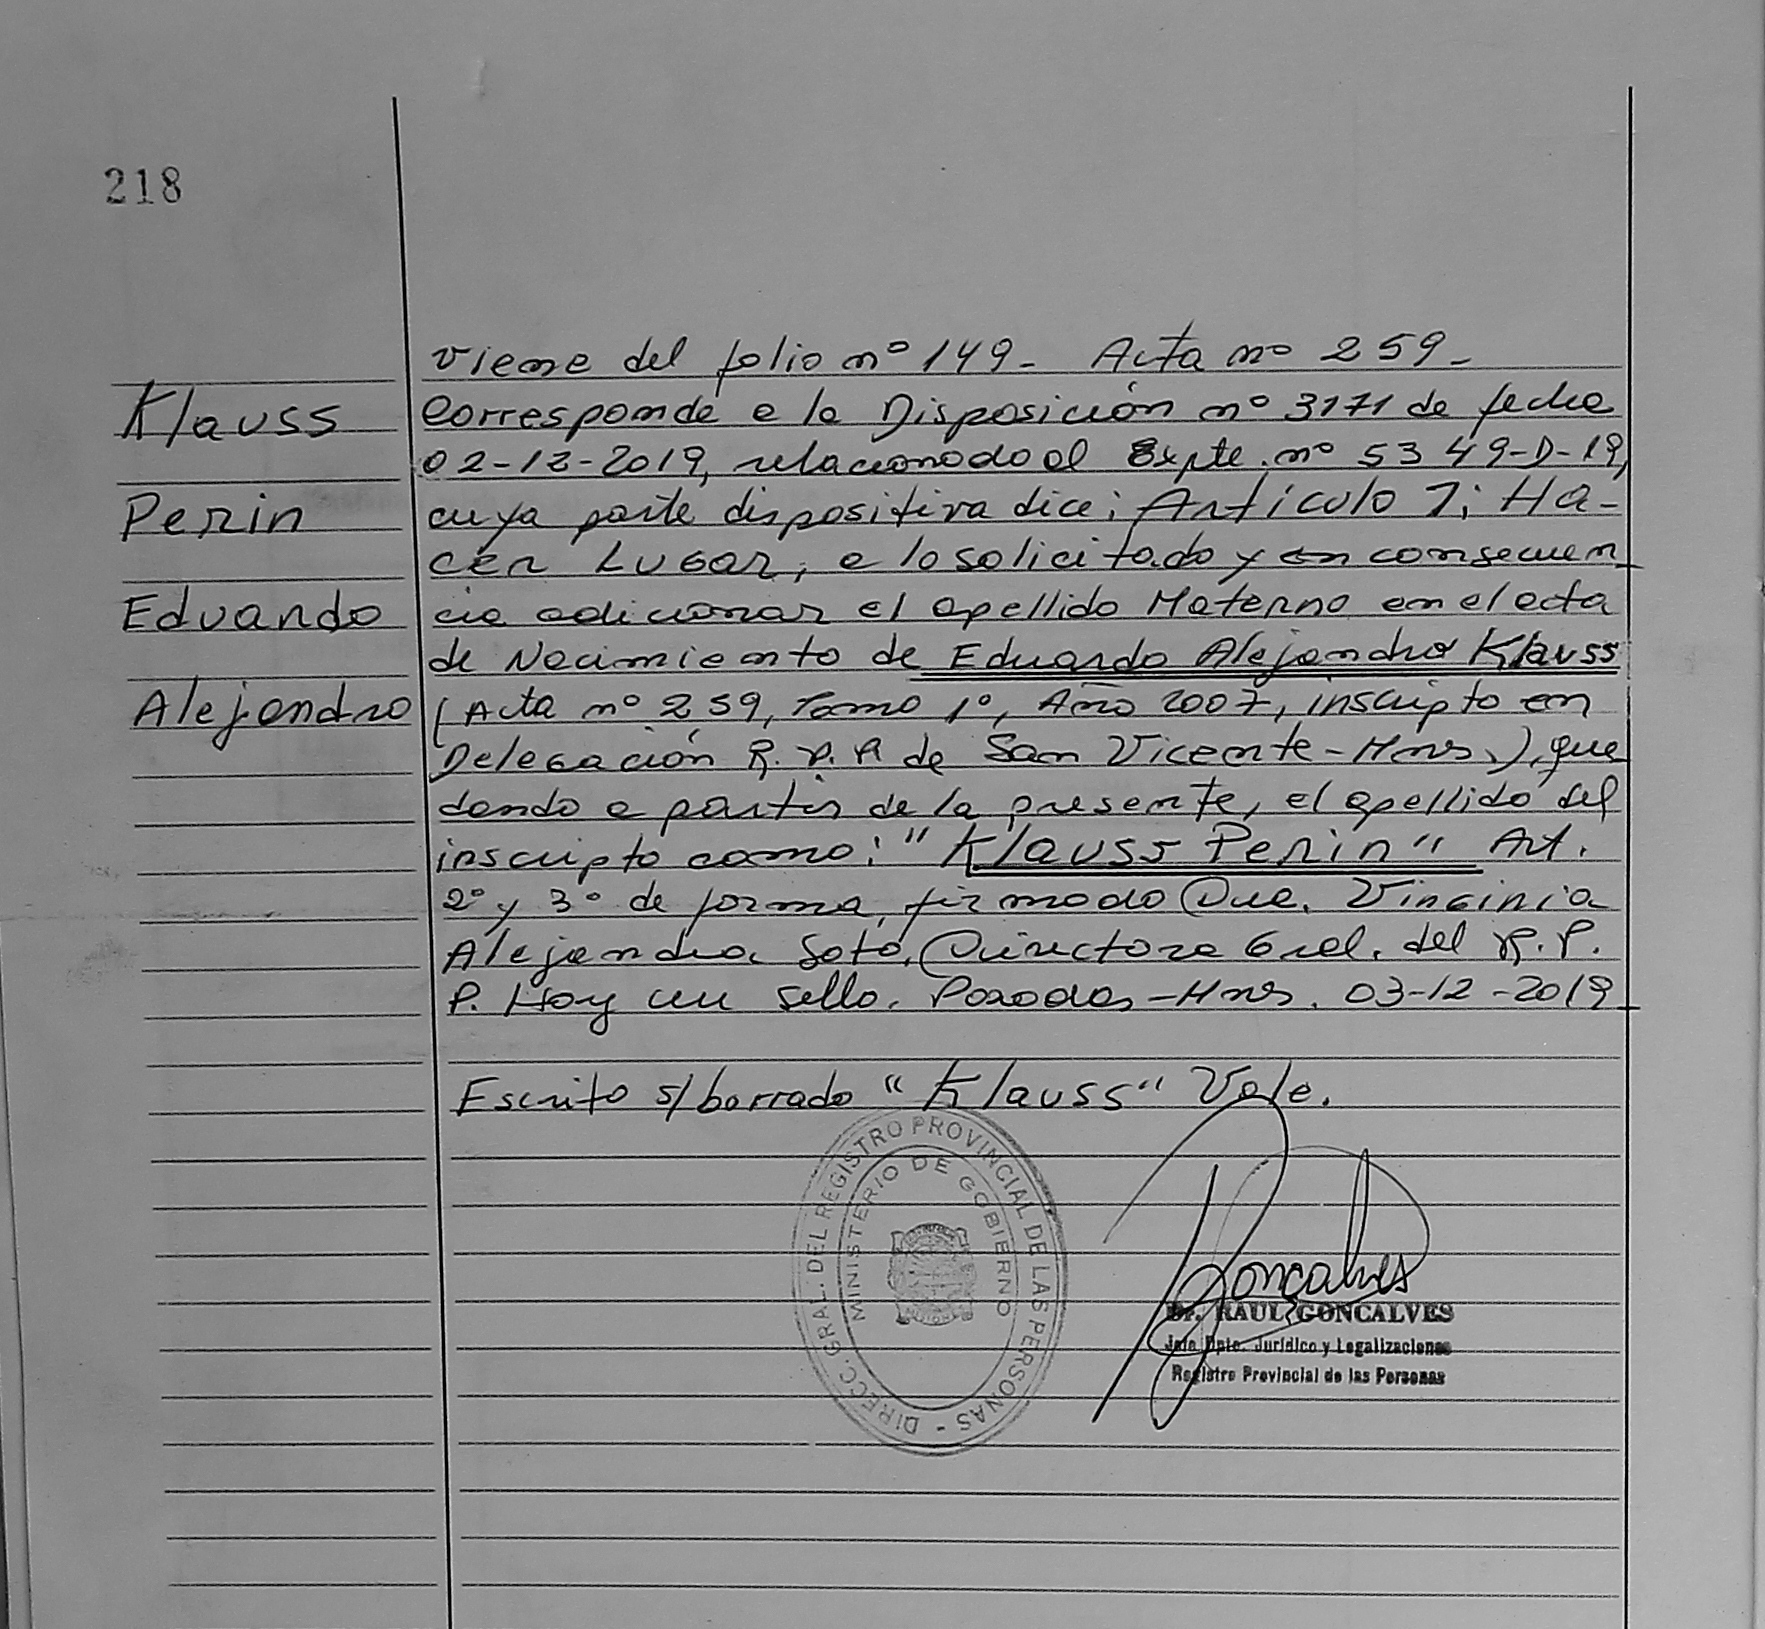 218
Klauss
Perin
Eduardo
Alejandro
viene del folio nº 149- Acta nº 259-
Corresponde a la Disposición nº 3171 de fecha
02-12-2019, relacionado al Expte. nº 5349-D-19,
cuya parte dispositiva dice: Artículo 1: HA-
CER LUGAR, a lo solicitado y en consecuen
cia adicionar el apellido Materno en el acta
de Nacimiento de Eduardo Alejandro Klauss
(Acta nº 259, Tomo 1º, Año 2007, inscripto en
Delegación R.P.P de San Vicente-Mnes.), que
dando a partir de la presente, el apellido del
inscripto como: "Klauss Perin" Art.
2º y 3º de forma, firmado Dra. Virginia
Alejandra Soto, Directora Gral. del R.P.
P. Hay un sello. Posadas-Mnes. 03-12-2019
Escrito s/borrado "Klauss" Vale.
DIRECC. GRAL. DEL REGISTRO PROVINCIAL DE LAS PERSONAS -
MINISTERIO DE GOBIERNO
Goncalves
Dr. RAUL GONCALVES
Jefe Dpto. Jurídico y Legalizaciones
Registro Provincial de las Personas